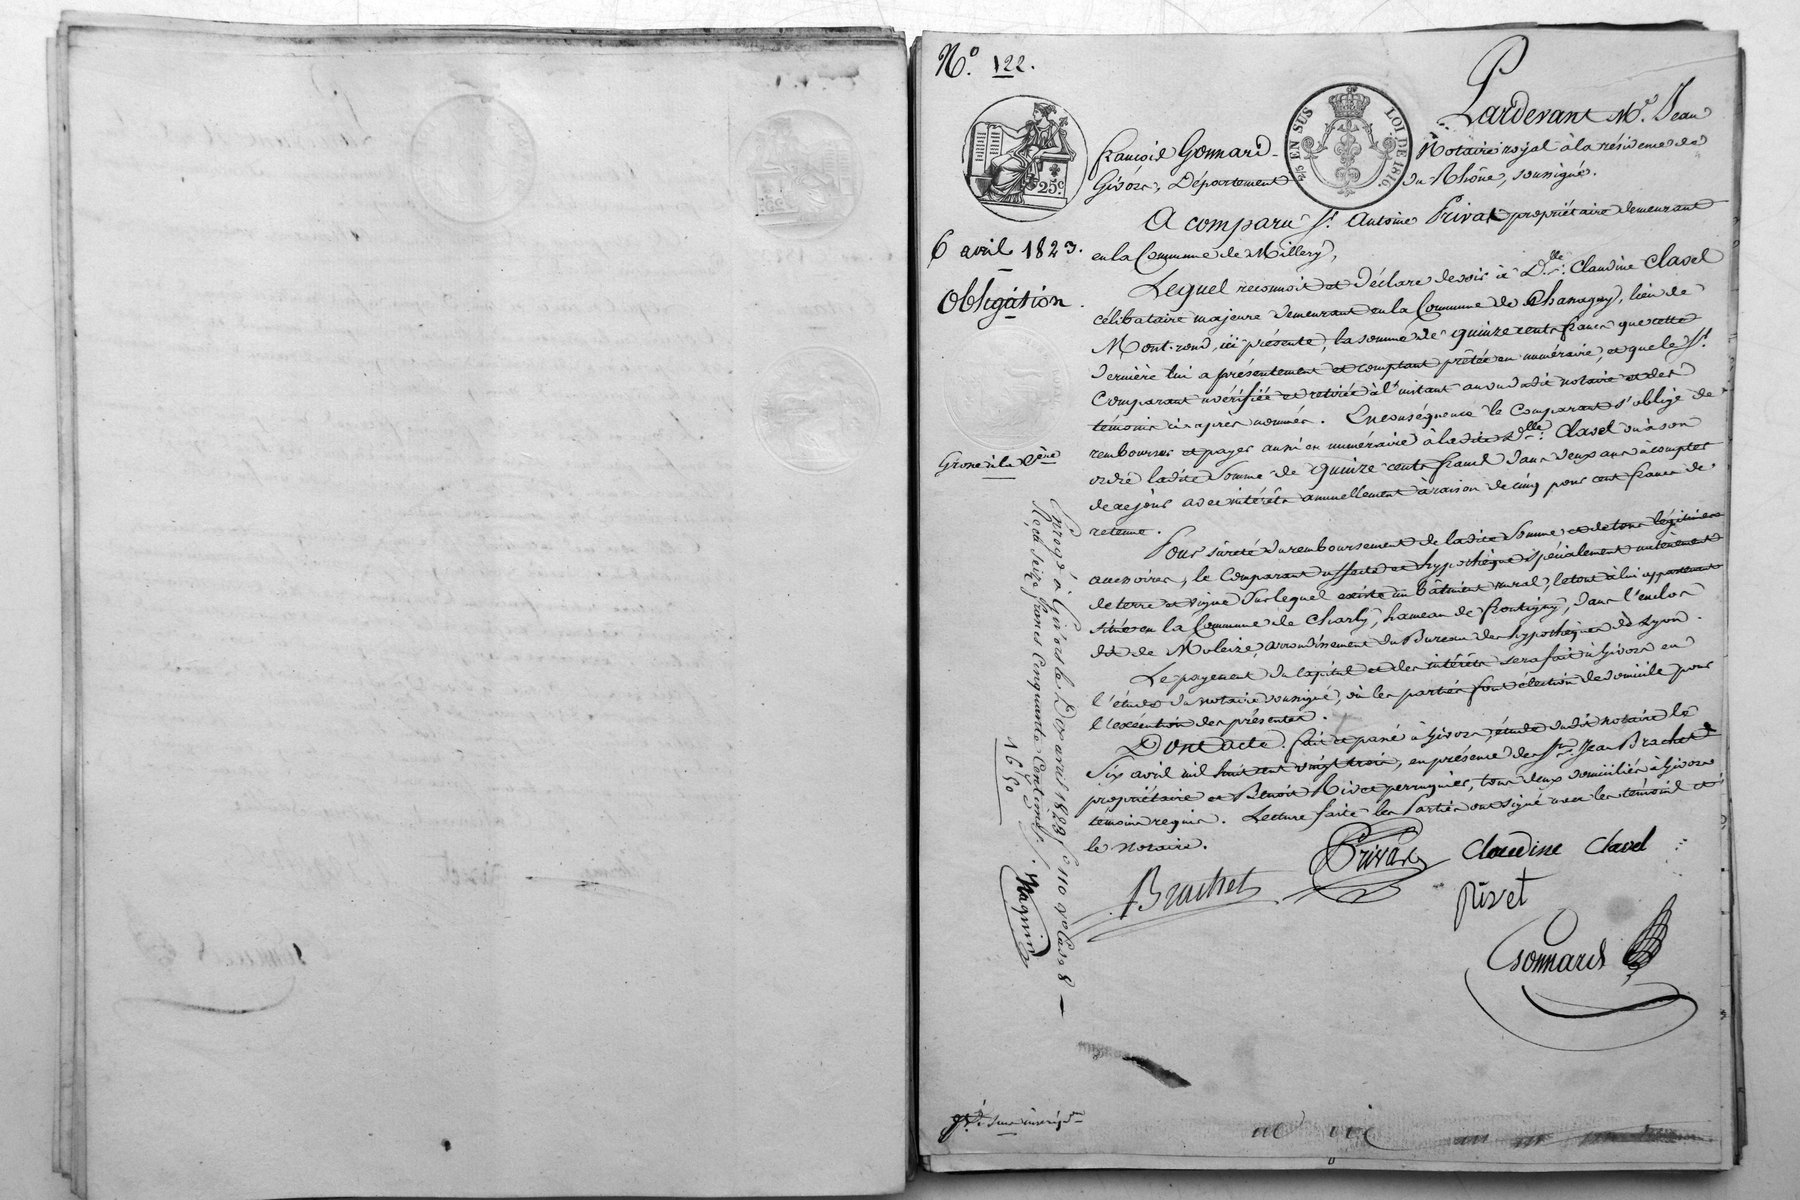 N.º 122.
Pardevant M.e Jean
françois Gonnard Notaire royal à la résidence de
Givors, Département du Rhône, soussigné.
25c
2/5 EN SUS LOI DE 1816
A comparu S.r Antoine Privat propriétaire demeurant
en la Commune de Millery,
6 avril 1823.
Obligation.
Lequel reconnoit et déclare devoir à D.lle Claudine Clavel
célibataire majeure demeurant en la Commune de Chassagny, lieu de
Mont-rond, ici présente, la somme de quinze cents francs que cette
dernière lui a présentement et comptant prêtée en numéraire, et que le S.r
Comparant a vérifiée et retirée à l'instant au vu dudit notaire et des
témoins ci-après nommés. En conséquence le Comparant s'oblige de
rembourser et payer aussi en numéraire à ladite D.lle Clavel ou à son
ordre ladite Somme de quinze cents francs dans deux ans à compter
de ce jour avec intérêts annuellement à raison de cinq pour cent francs de
retenue.
Grosse à la
Pour sûreté du remboursement de ladite Somme et de tous légitimes
accessoires, le Comparant affecte et hypothèque spécialement un tènement
de terre et vigne sur lequel existe un bâtiment rural, le tout à lui appartenant
situé en la Commune de Charly, hameau de frontigny, dans l'enclos
dit de Moleize, arrondissement du Bureau des hypothèques de Lyon.
Le payement du capital et des intérêts sera fait à Givors en
l'étude du notaire soussigné, où les parties font élection de domicile pour
l'exécution des présentes.
Dont acte. fait et passé à Givors, étude dudit notaire le
Six avril mil huit cent vingt trois, en présence des S.rs Jean Brachet
propriétaire et Benoit Rivet perruquier, tous deux domiciliés à Givors
témoins requis. Lecture faite les Parties ont signé avec les témoins et
le notaire.
Privat Claudine Clavel
Brachet Rivet
Gonnard
Enregé à Givors le Dix avril 1823 fo 110 Vo Case 8
Reçu Seize francs Cinquante Centimes.
16 50
Magnin